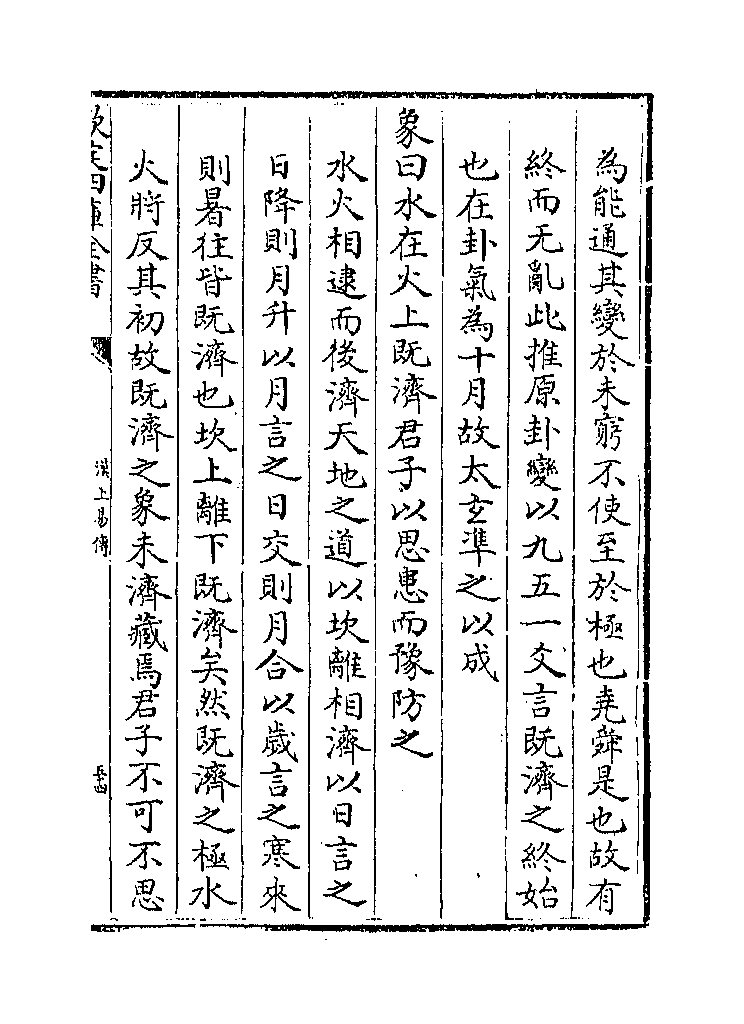 為能通其變於未窮不使至於極也堯舜是也故有
終而无亂此推原卦變以九五一爻言既濟之終始
也在卦氣為十月故太玄準之以成
象曰水在火上既濟君子以思患而豫防之
水火相逮而後濟天地之道以坎離相濟以日言之
日降則月升以月言之日交則月合以歲言之寒來
則暑往皆既濟也坎上離下既濟矣然既濟之極水
火將反其初故既濟之象未濟藏焉君子不可不思
欽定四庫全書
漢上易傳